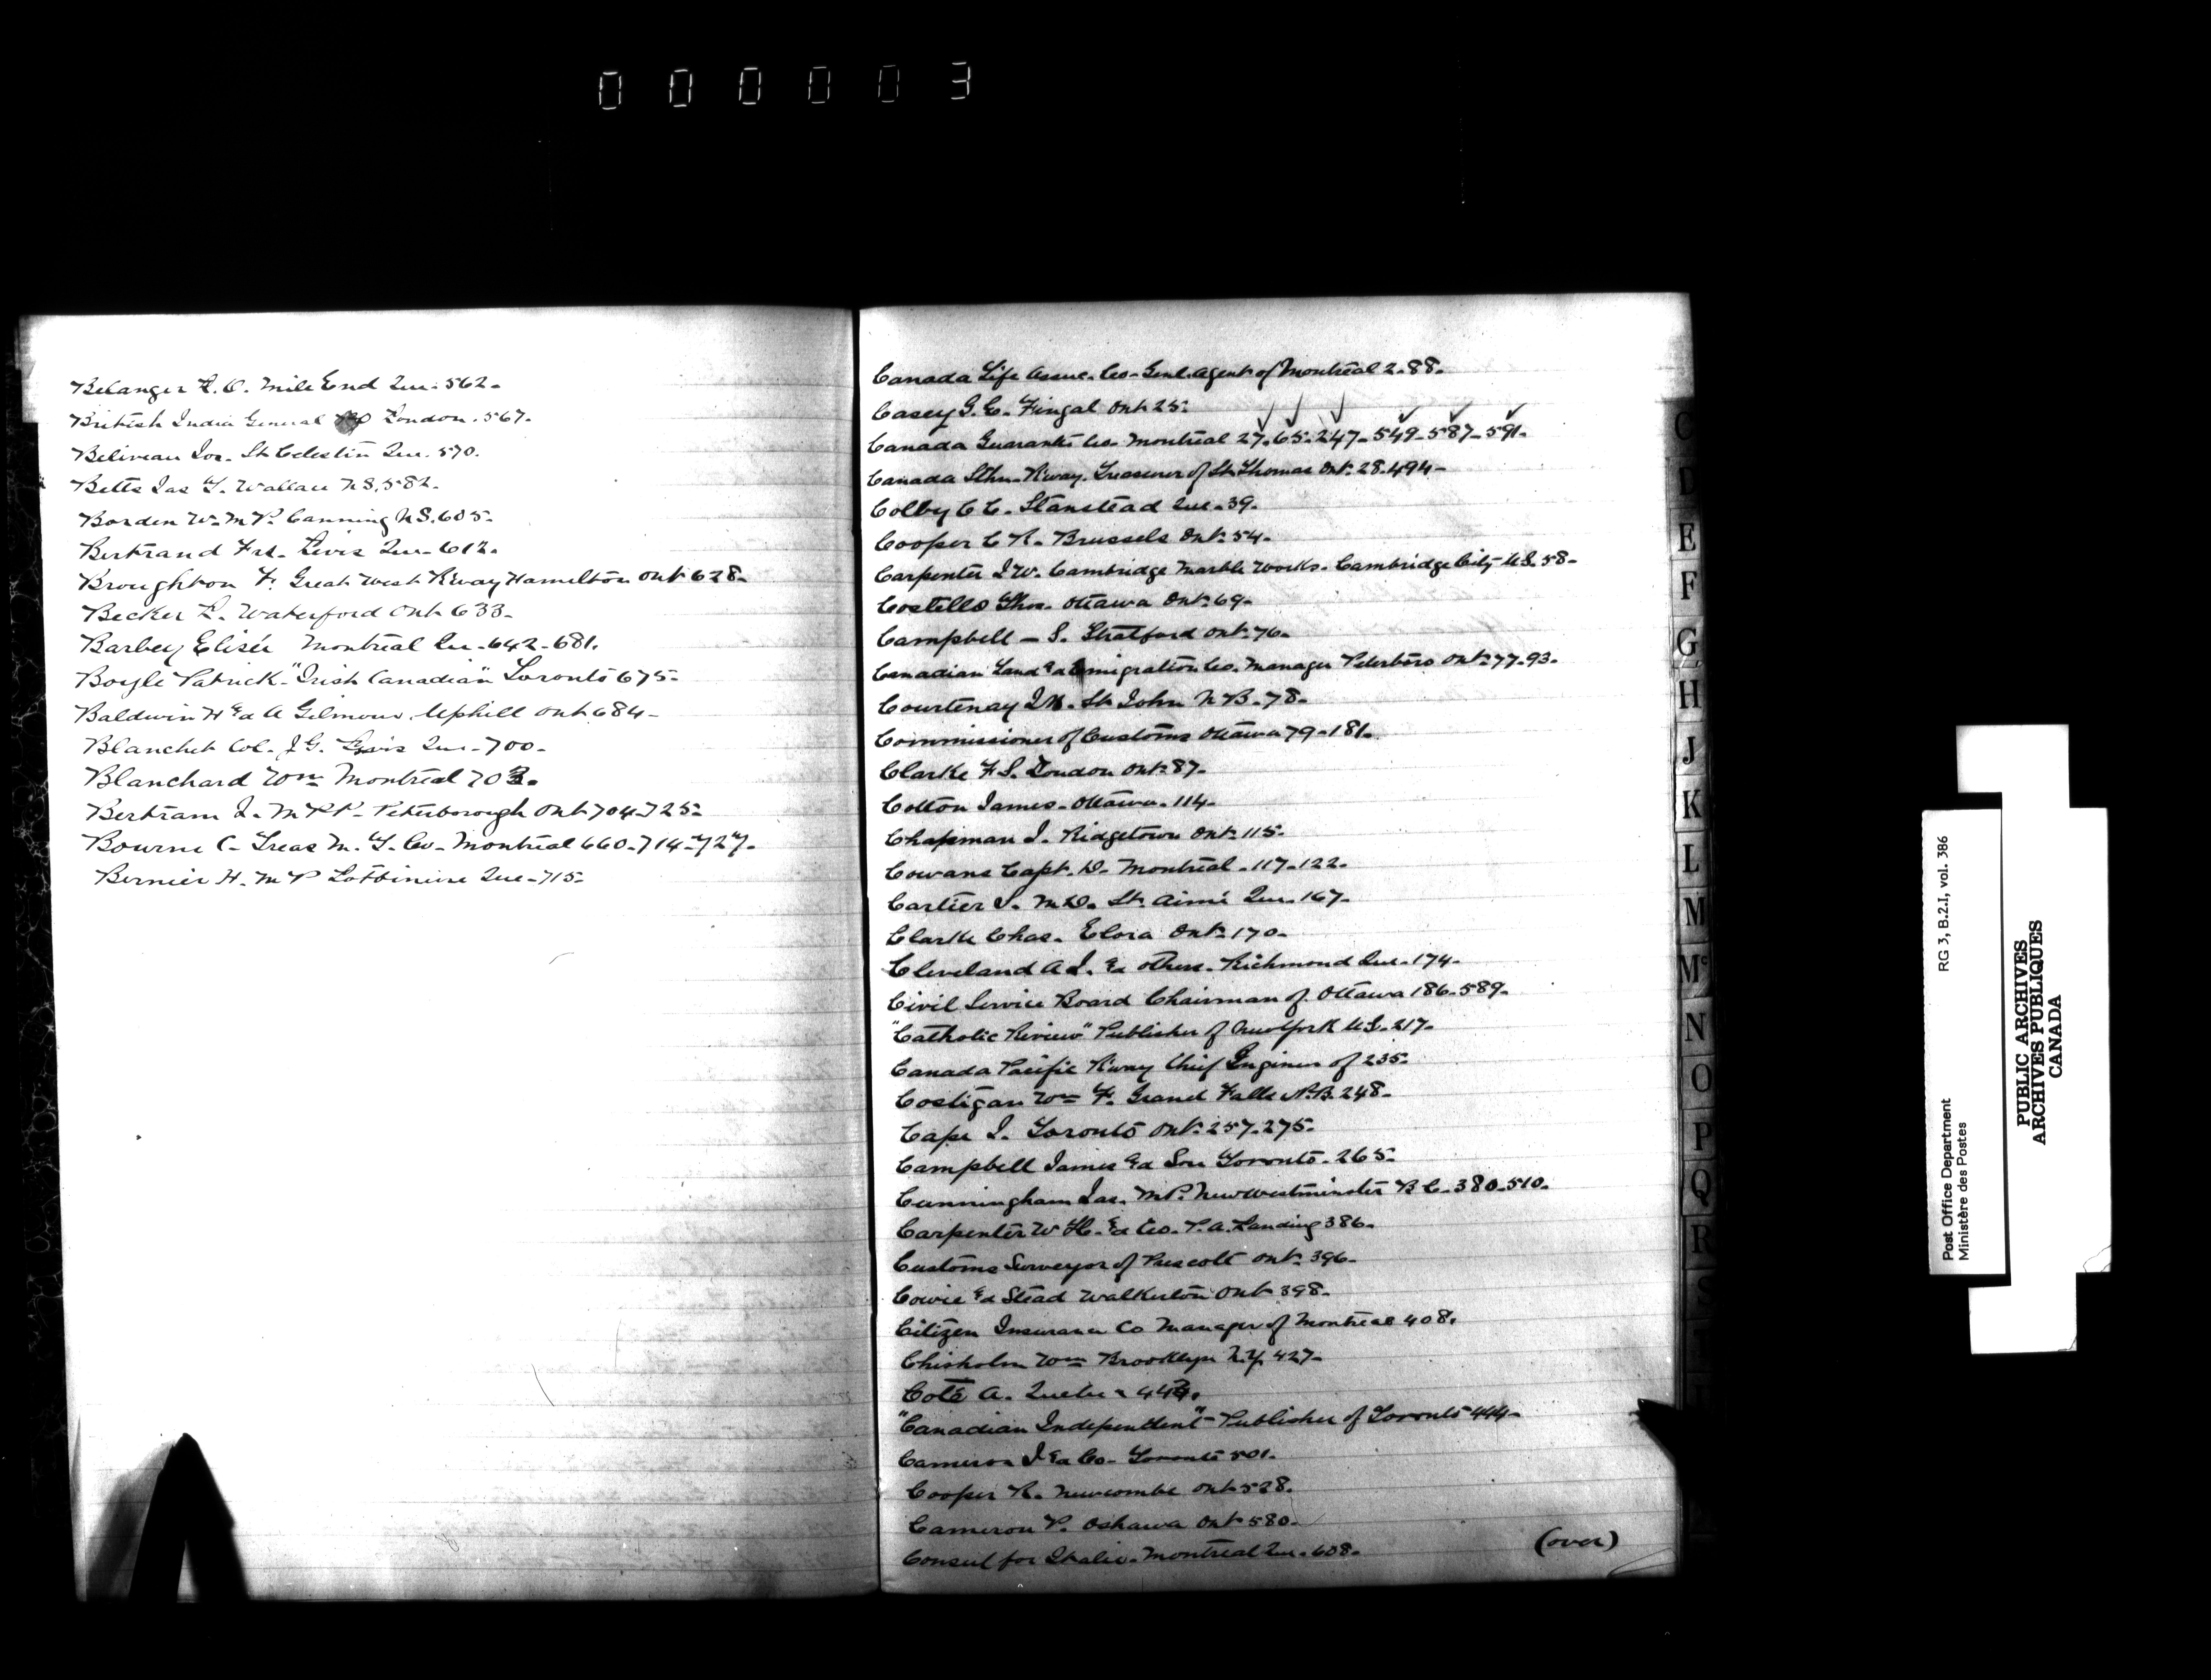 000003
Belanger L. O. Mile End Que. 562.
British India General London. 567.
Beliveau Jos. St Celestin Que. 570.
Betts Jas Y. Wallace N.S. 582.
Borden W. M.P. Canning N.S. 605.
Bertrand Frs. Levis Que. 612.
Broughton F. Great West Rway Hamilton Ont 628.
Becker L. Waterford Ont 633.
Barbey Elisée Montreal Que. 642. 681.
Boyle Patrick "Irish Canadian" Toronto 675.
Baldwin H & A Gilmour. Uphill Ont 684.
Blanchet Col. J G. Levis Que. 700.
Blanchard Wm Montreal 703.
Bertram J. M.P.P. Peterborough Ont 704. 725.
Bourne C. Treas M. T. Co. Montreal 660. 714. 727.
Bernier H. M P Lotbiniere Que. 715.
Canada Life Assue. Co. Genl. Agent of Montreal 2. 88.
Casey G. E. Fingal Ont 25.
Canada Guarante Co. Montreal 27. 65. 247. 549. 587. 591.
Canada Sthn. Rway. Treasurer of St Thomas Ont. 28. 494.
Colby C C. Stanstead Que. 39.
Cooper C R. Brussels Ont. 54.
Carpenter J W. Cambridge Marble Works. Cambridge City U.S. 58.
Costello Thos. Ottawa Ont. 69.
Campbell — S. Stratford Ont. 76.
Canadian Land & Emigration Co. Manager Peterboro Ont. 77. 93.
Courtenay J. St John N B. 78.
Commissioner of Customs Ottawa 79. 181.
Clarke F S. London Ont. 87.
Cotton James. Ottawa. 114.
Chapman J. Ridgetown Ont. 115.
Cowans Capt. D. Montreal. 117. 122.
Cartier J. M.D. St. Aimé Que. 167.
Clarke Chas. Elora Ont. 170.
Cleveland A J. & others. Richmond Que. 174.
Civil Service Board Chairman of. Ottawa 186. 589.
"Catholic Review" Publisher of New York U.S. 217.
Canada Pacific Rway Chief Engineer of 235.
Costigan Wm F. Grand Falls N.B. 248.
Cape J. Toronto Ont. 257. 275.
Campbell James & Son Toronto. 265.
Cunningham Jas. M.P. New Westminster B C. 380. 510.
Carpenter W H. & Co. P. A. Landing 386.
Customs Surveyor of Prescott Ont. 396.
Cowie & Stead Walkerton Ont 398.
Citizen Insurance Co Manager of Montreal 408.
Chisholm Wm Brooklyn N.Y. 427.
Coté A. Quebec
"Canadian Independent" Publisher of Toronto 444.
Cameron J & Co. Toronto 501.
Cooper R. Newcombe Ont 528.
Cameron P. Oshawa Ont 580.
Consul for Italie. Montreal Que. 608.
(over)
C
D
E
F
G
H
J
K
L
M
Mc
N
O
P
Q
R
S
RG 3, B.2.I, vol. 386
Post Office Department
Ministère des Postes
PUBLIC ARCHIVES
ARCHIVES PUBLIQUES
CANADA